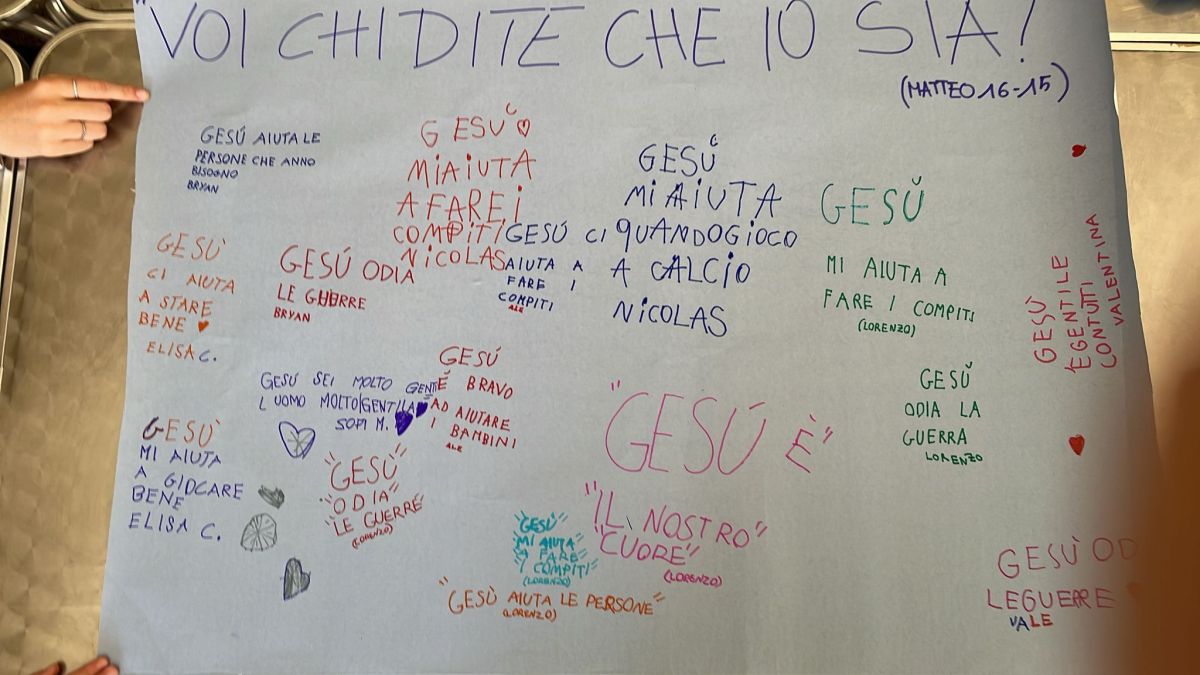 "VOI CHI DITE CHE IO SIA!
(MATTEO 16-15)
GESÚ AIUTA LE
PERSONE CHE ANNO
BISOGNO
BRYAN
GESU
MI AIUTA
A FARE I
COMPITI
NICOLAS
GESÚ
MI AIUTA
QUANDO GIOCO
A CALCIO
NICOLAS
GESÚ
MI AIUTA A
FARE I COMPITI
(LORENZO)
GESÚ
É GENTILE
CON TUTTI
VALENTINA
GESU'
CI AIUTA
A STARE
BENE
ELISA C.
GESÚ ODIA
LE GUERRE
BRYAN
GESÚ CI
AIUTA A
FARE I
COMPITI
ALE
GESÚ SEI MOLTO GENTI
L UOMO MOLTO GENTILA
SOFI M.
GESÚ
É BRAVO
AD AIUTARE
I BAMBINI
ALE
GESÚ
ODIA LA
GUERRA
LORENZO
GESU'
MI AIUTA
A GIOCARE
BENE
ELISA C.
"GESÚ"
"ODIA"
"LE GUERRE"
(LORENZO)
"GESÚ È"
"IL NOSTRO"
"CUORE"
(LORENZO)
"GESÚ"
"MI AIUTA"
"A FARE"
"I COMPITI"
(LORENZO)
"GESÚ AIUTA LE PERSONE"
(LORENZO)
GESÙ OD
LE GUERRE
VALE